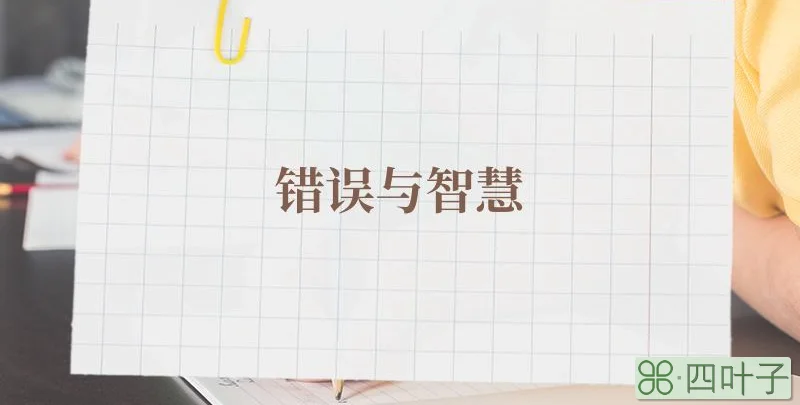 错误与智慧
四叶子